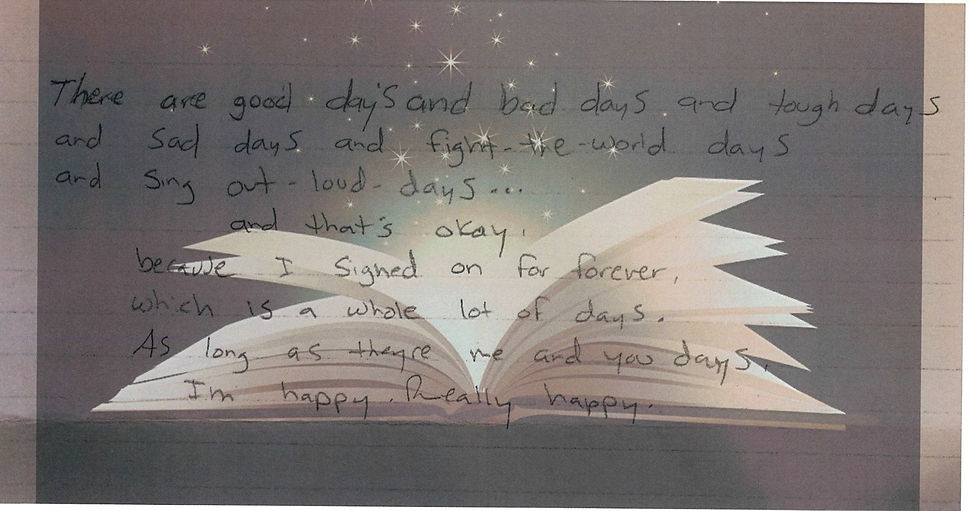 There are good day's and bad days and tough days
and sad days and fight-the-world days
and sing out-loud-days...
and that's okay,
because I signed on for forever,
which is a whole lot of days.
As long as they're me and you days,
I'm happy. Really happy.